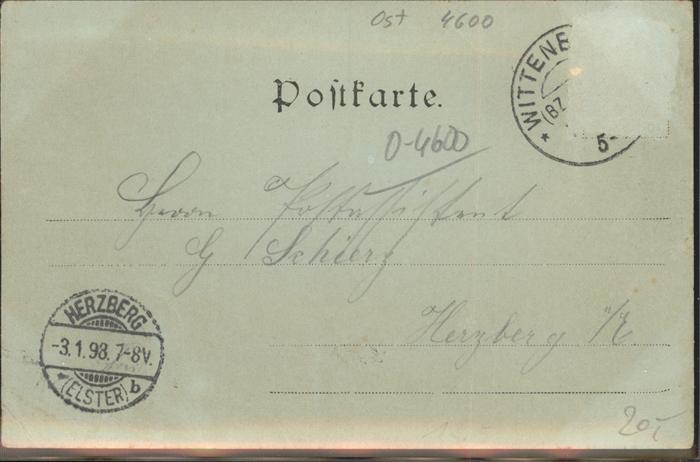 Ost 4600
WITTENB
(BZ
5-
Postkarte.
O-4600
Herrn Postassistent
G Schierz
Herzberg a/E
HERZBERG
-3.1.98.7-8V.
*(ELSTER) b
20,-